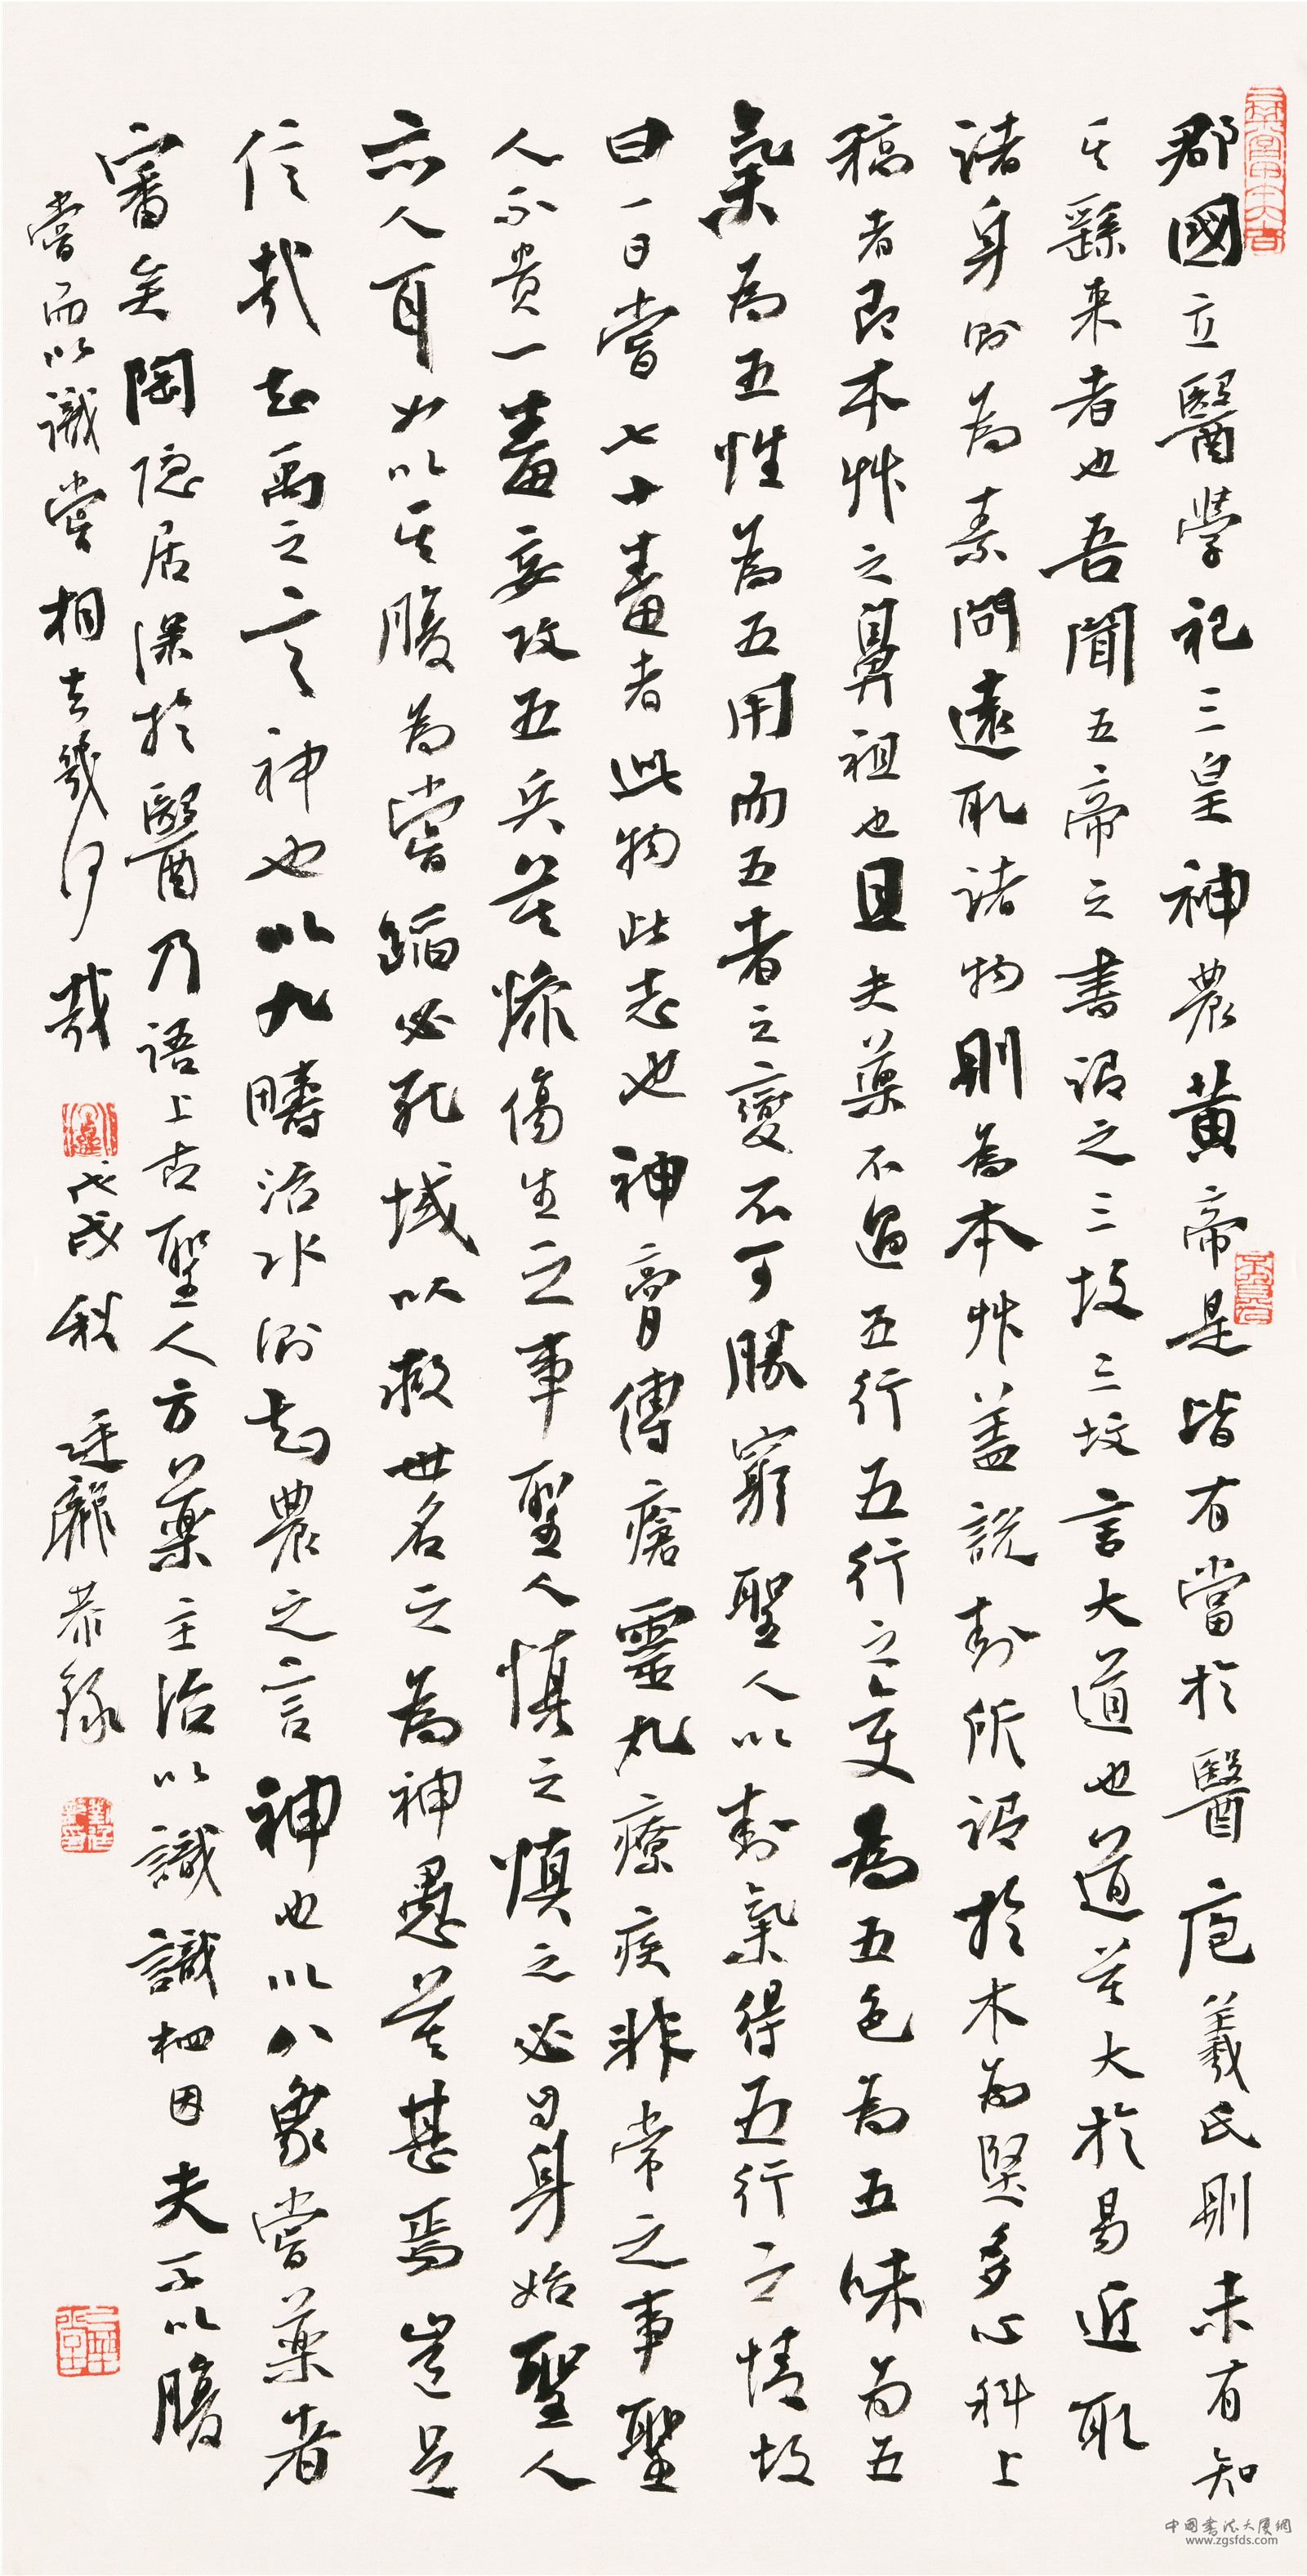 郡國立醫學祀三皇神農黃帝是皆有當於醫庖羲氏則未有知
其繇来者也吾聞五帝之書謂之三墳三坟言大道也道莫大於易近取
諸身則為素問遠取諸物則為本艸蓋說卦所謂於木為堅多心科上
稿者即本艸之鼻祖也且夫藥不過五行五行之变為五色為五味為五
氣為五性為五用而五者之變不可勝窮聖人以卦氣得五行之情故
曰一日嘗七十毒者此物此志也神膏傅瘡靈丸療疾非常之事聖
人不貴一毒妄攻五兵莫慘傷生之事聖人慎之慎之必自身始聖人
亦人耳如以其腹為嘗蹈必死域以救世名之為神愚莫甚焉豈足
信哉知禹之言神也以九疇治水則知農之言神也以八象嘗藥者
審矣陶隐居深於醫乃語上古聖人方藥主治以識識相因夫不以腹
嘗而以識嘗相去幾何哉
戊戌秋 廷龍恭録
中國書法大廈網
www.zgsfds.com